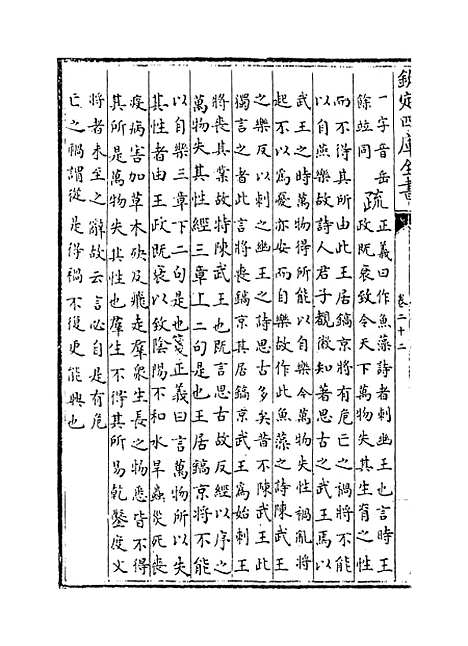 欽定四庫全書
卷二十二
一字音岳 疏 正義曰作魚藻詩者刺幽王也言時王
餘竝同 政既衰致令天下萬物失其生育之性
而不得其所由此王居鎬京將有危亡之禍將不能
以自燕樂故詩人君子覩微知著思古之武王焉以
武王之時萬物得所能以自樂今萬物失性禍亂將
起不以爲憂亦安而自樂故作此魚藻之詩陳武王
之樂反以刺之幽王之詩思古多矣皆不陳武王此
獨言之者此言將喪鎬京其居鎬京武王爲始刺王
將喪其業故特陳武王也既言思古故反經以序之
萬物失其性經三章上二句是也王居鎬京將不能
以自樂三章下二句是也箋正義曰言萬物所以失
其性者由王政既衰以致陰陽不和水旱蟲災死喪
疾病害加草木殃及飛走羣衆生長之物悉皆不得
其所是萬物失其性也羣生不得其所易乾鑿度文
將者未至之辭故云言必自是有危
亡之禍謂從是得禍不復更能興也